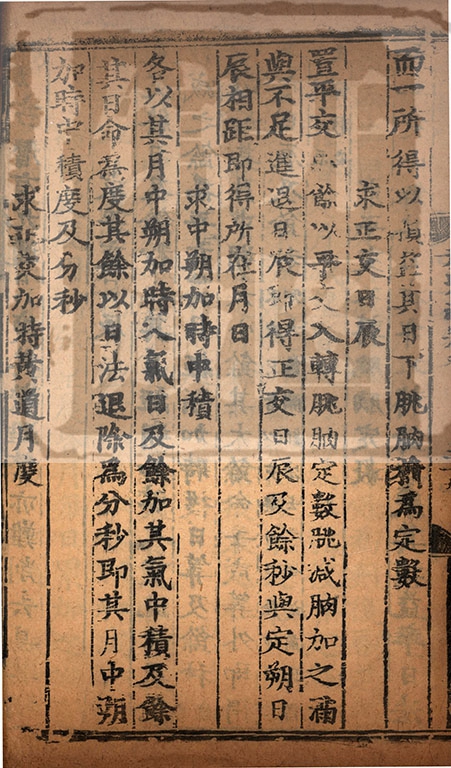 而一所得以損益其日下朓朒積為定數
求正交日辰
置平交小餘以平交入轉朓朒定數朓減朒加之滿
與不足進退日辰即得正交日辰及餘秒與定朔日
辰相距即得所在月日
求中朔加時中積
各以其月中朔加時入氣日及餘加其氣中積及餘
其日命為度其餘以日法退除為分秒即其月中朔
加時中積度及分秒
求正交加時黃道月度